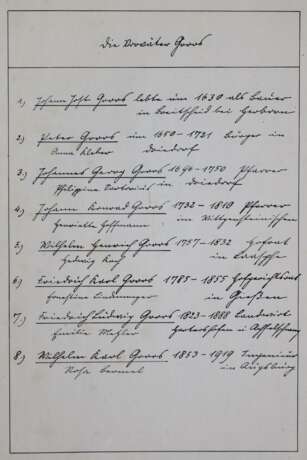 Die Vorväter Groos
1.) Johann Jost Groos lebte um 1630 als Bauer
in Breitscheid bei Herborn
2.) Peter Groos um 1650-1721 Bürger in
Anna Weber Driedorf
3.) Johannes Georg Groos 1694-1750 Pfarrer
Philipine Sartorius in Driedorf
4.) Johann Konrad Groos 1732-1810 Pfarrer
Henriette Hoffmann im Wittgensteinschen
5.) Wilhelm Henrich Groos 1757-1832 Hofrat
Hedwig in Laasphe
6.) Friedrich Karl Groos 1785-1855 Hofgerichtsrat
Ernestine in Gießen
7.) Friedrich Ludwig Groos 1823-1888 Landwirt
Emilie Mettler
8.) Wilhelm Karl Groos 1853-1919 Ingenieur
Rosa Bermel in Augsburg